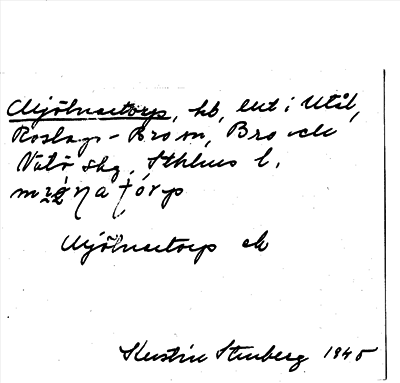 Mjölnartorp, hb, ent i Utål,
Roslags-Bro sn, Bro och
Vätö skg, Sthlms l.
Mjölnartorp ek
Kerstin Stenberg 1945